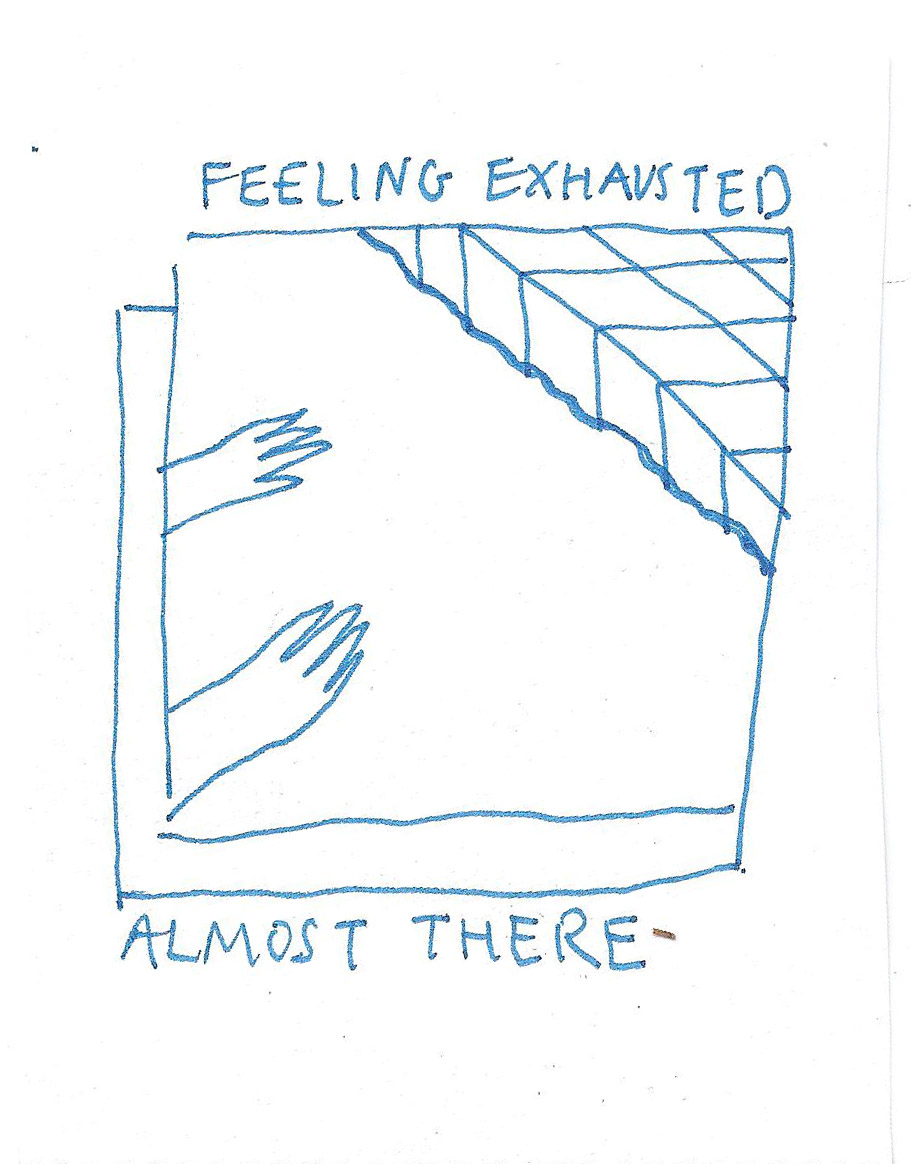 FEELING EXHAUSTED
ALMOST THERE